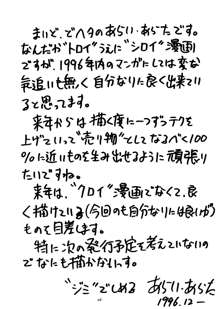 まいど、でヘタのあらい・あらたです。
なんだか"トロイ"うえに"シロイ"漫画
ですが、1996年内のマンガにしては変な
気追いも無く自分なりに良く出来てい
ると思ってます。
来年からは描く度に一つずつテクを
上げていって"売り物"としてなるべく100
%に近いものを生み出せるように頑張り
たいですね。
来年は、"クロイ"漫画でなくて、良
く描けている(今回のも自分なりには良いが)
ものを目差します。
特に次の発行予定を考えていないの
でなにも描かないっす。
"ジミ"でしめる あらい・あらた
1996.12—